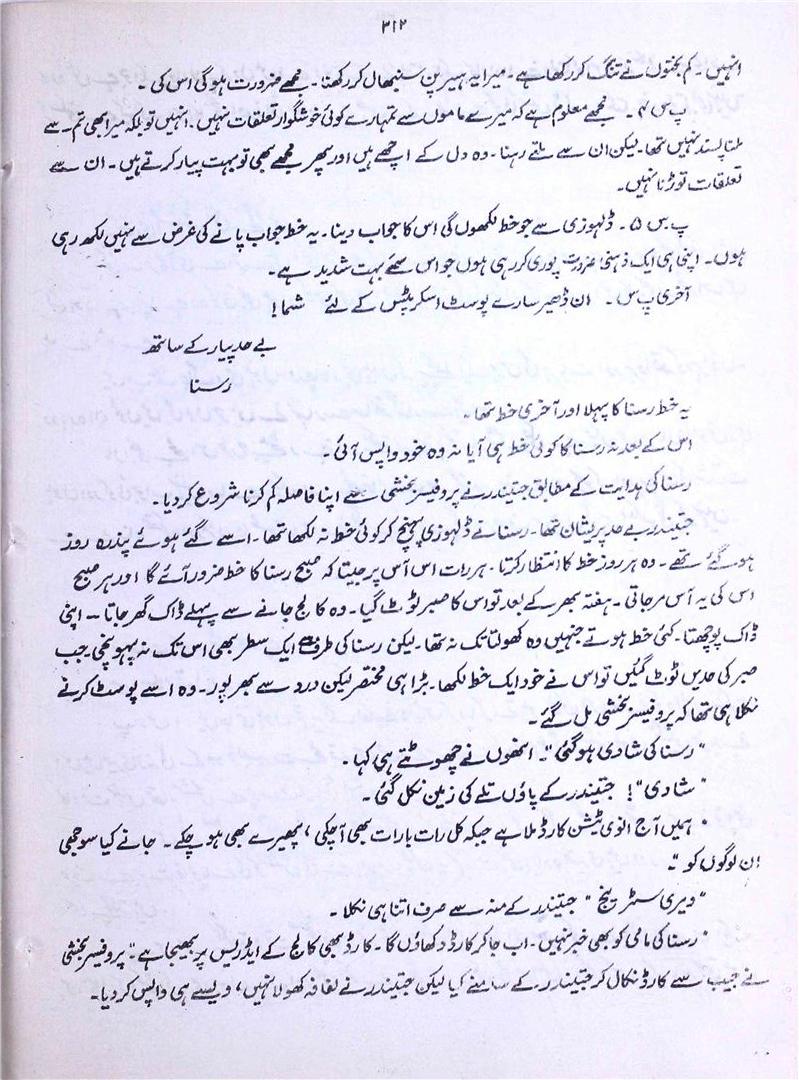 ۳۱۲
انہیں۔ کم بختوں نے تنگ کر رکھا ہے۔ میرا یہ ہیر پن سنبھال کر رکھنا۔ مجھے ضرورت ہوگی اس کی۔
پ س ۴۔ مجھے معلوم ہے کہ میرے ماموں سے تمہارے کوئی خوشگوار تعلقات نہیں۔ انہیں تو بلکہ میرا بھی تم سے
ملنا پسند نہیں تھا۔ لیکن ان سے ملتے رہنا۔ وہ دل کے اچھے ہیں اور پھر مجھے بھی تو بہت پیار کرتے ہیں۔ ان سے
تعلقات توڑنا نہیں۔
پ س ۵۔ ڈلہوزی سے جو خط لکھوں گی اس کا جواب دینا۔ یہ خط جواب پانے کی غرض سے نہیں لکھ رہی
ہوں۔ اپنی ہی ایک ذہنی ضرورت پوری کر رہی ہوں جو اس سمئے بہت شدید ہے۔
آخری پ س۔ ان ڈھیر سارے پوسٹ اسکرپٹس کے لئے شما!
بے حد پیار کے ساتھ
رسنا
یہ خط رسنا کا پہلا اور آخری خط تھا۔
اس کے بعد نہ رسنا کا کوئی خط ہی آیا نہ وہ خود واپس آئی۔
رسنا کی ہدایت کے مطابق جتیندر نے پروفیسر بخشی سے اپنا فاصلہ کم کرنا شروع کر دیا۔
جتیندر بے حد پریشان تھا۔ رسنا نے ڈلہوزی پہنچ کر کوئی خط نہ لکھا تھا۔ اسے گئے ہوئے پندرہ روز
ہو گئے تھے۔ وہ ہر روز خط کا انتظار کرتا۔ ہر رات اس آس پر جیتا کہ صبح رسنا کا خط ضرور آئے گا اور ہر صبح
اس کی یہ آس مر جاتی۔ ہفتہ بھر کے بعد تو اس کا صبر ٹوٹ گیا۔ وہ کالج جانے سے پہلے ڈاک گھر جاتا۔ اپنی
ڈاک پوچھتا۔ کئی خط ہوتے جنہیں وہ کھولتا تک نہ تھا۔ لیکن رسنا کی طرف سے ایک سطر بھی اس تک نہ پہونچی۔ جب
صبر کی حدیں ٹوٹ گئیں تو اس نے خود ایک خط لکھا۔ بڑا ہی مختصر لیکن درد سے بھرپور۔ وہ اسے پوسٹ کرنے
نکلا ہی تھا کہ پروفیسر بخشی مل گئے۔
"رسنا کی شادی ہو گئی"۔ انھوں نے چھوٹتے ہی کہا۔
"شادی"! جتیندر کے پاؤں تلے کی زمین نکل گئی۔
"ہمیں آج انوی ٹیشن کارڈ ملا ہے جبکہ کل رات بارات بھی آ چکی، پھیرے بھی ہو چکے۔ جانے کیا سوجھی
ان لوگوں کو"۔
"ویری سٹرینج" جتیندر کے منہ سے صرف اتنا ہی نکلا۔
"رسنا کی مامی کو بھی خبر نہیں۔ اب جا کر کارڈ دکھاؤں گا۔ کارڈ بھی کالج کے ایڈریس پر بھیجا ہے" پروفیسر بخشی
نے جیب سے کارڈ نکال کر جتیندر کے سامنے کیا لیکن جتیندر نے لفافہ کھولا نہیں، ویسے ہی واپس کر دیا۔